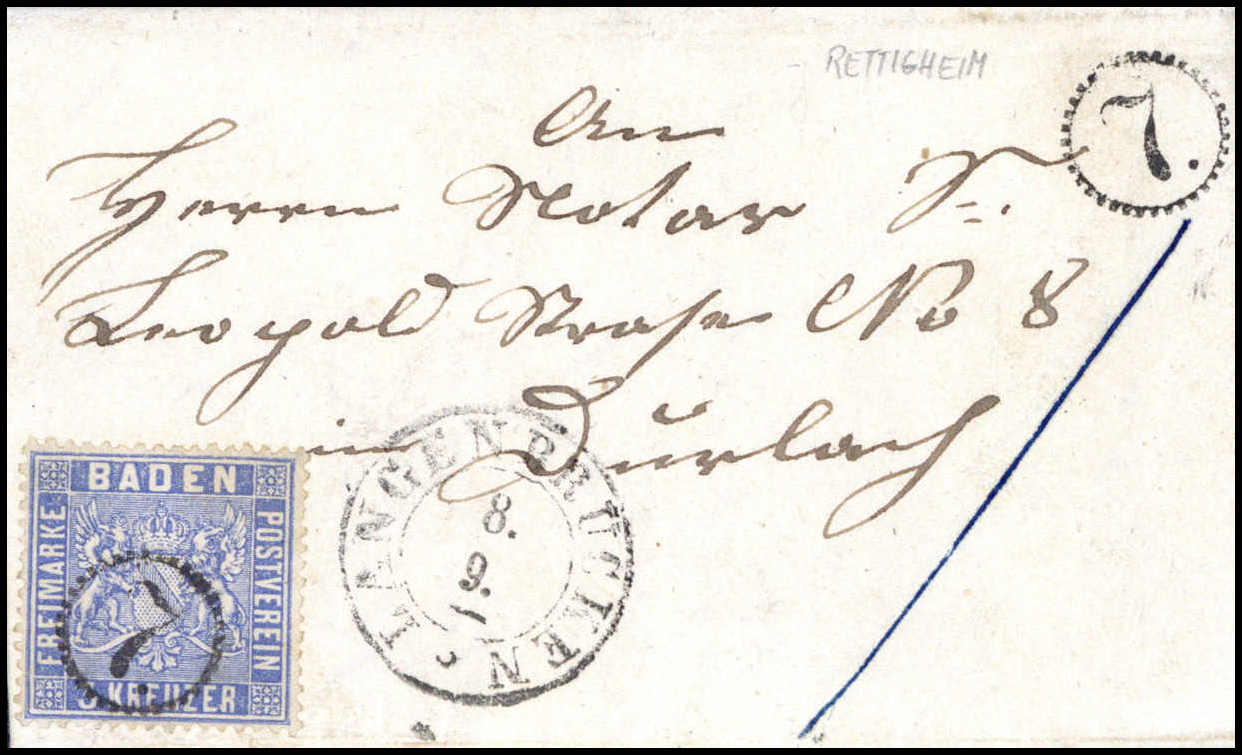 RETTIGHEIM
7.
An
Herrn Notar
Leopold Straße No 8
in Durlach
BADEN
FREIMARKE
POSTVEREIN
KREUZER
7.
LANGENBRÜCKEN
8.
9.